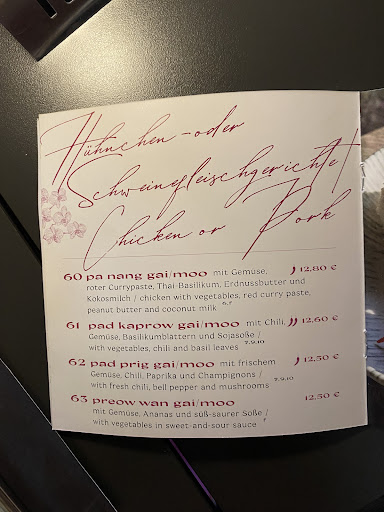 Hühnchen- oder
Schweinefleischgerichte
Chicken or Pork
60 pa nang gai/moo mit Gemüse, 12,80 €
roter Currypaste, Thai-Basilikum, Erdnussbutter und
Kokosmilch / chicken with vegetables, red curry paste,
peanut butter and coconut milk 6,7
61 pad kaprow gai/moo mit Chili, 12,60 €
Gemüse, Basilikumblattern und Sojasoße /
with vegetables, chili and basil leaves 7,9,10
62 pad prig gai/moo mit frischem 12,50 €
Gemüse, Chili, Paprika und Champignons /
with fresh chili, bell pepper and mushrooms 7,9,10
63 preow wan gai/moo 12,50 €
mit Gemüse, Ananas und süß-saurer Soße /
with vegetables in sweet-and-sour sauce 7